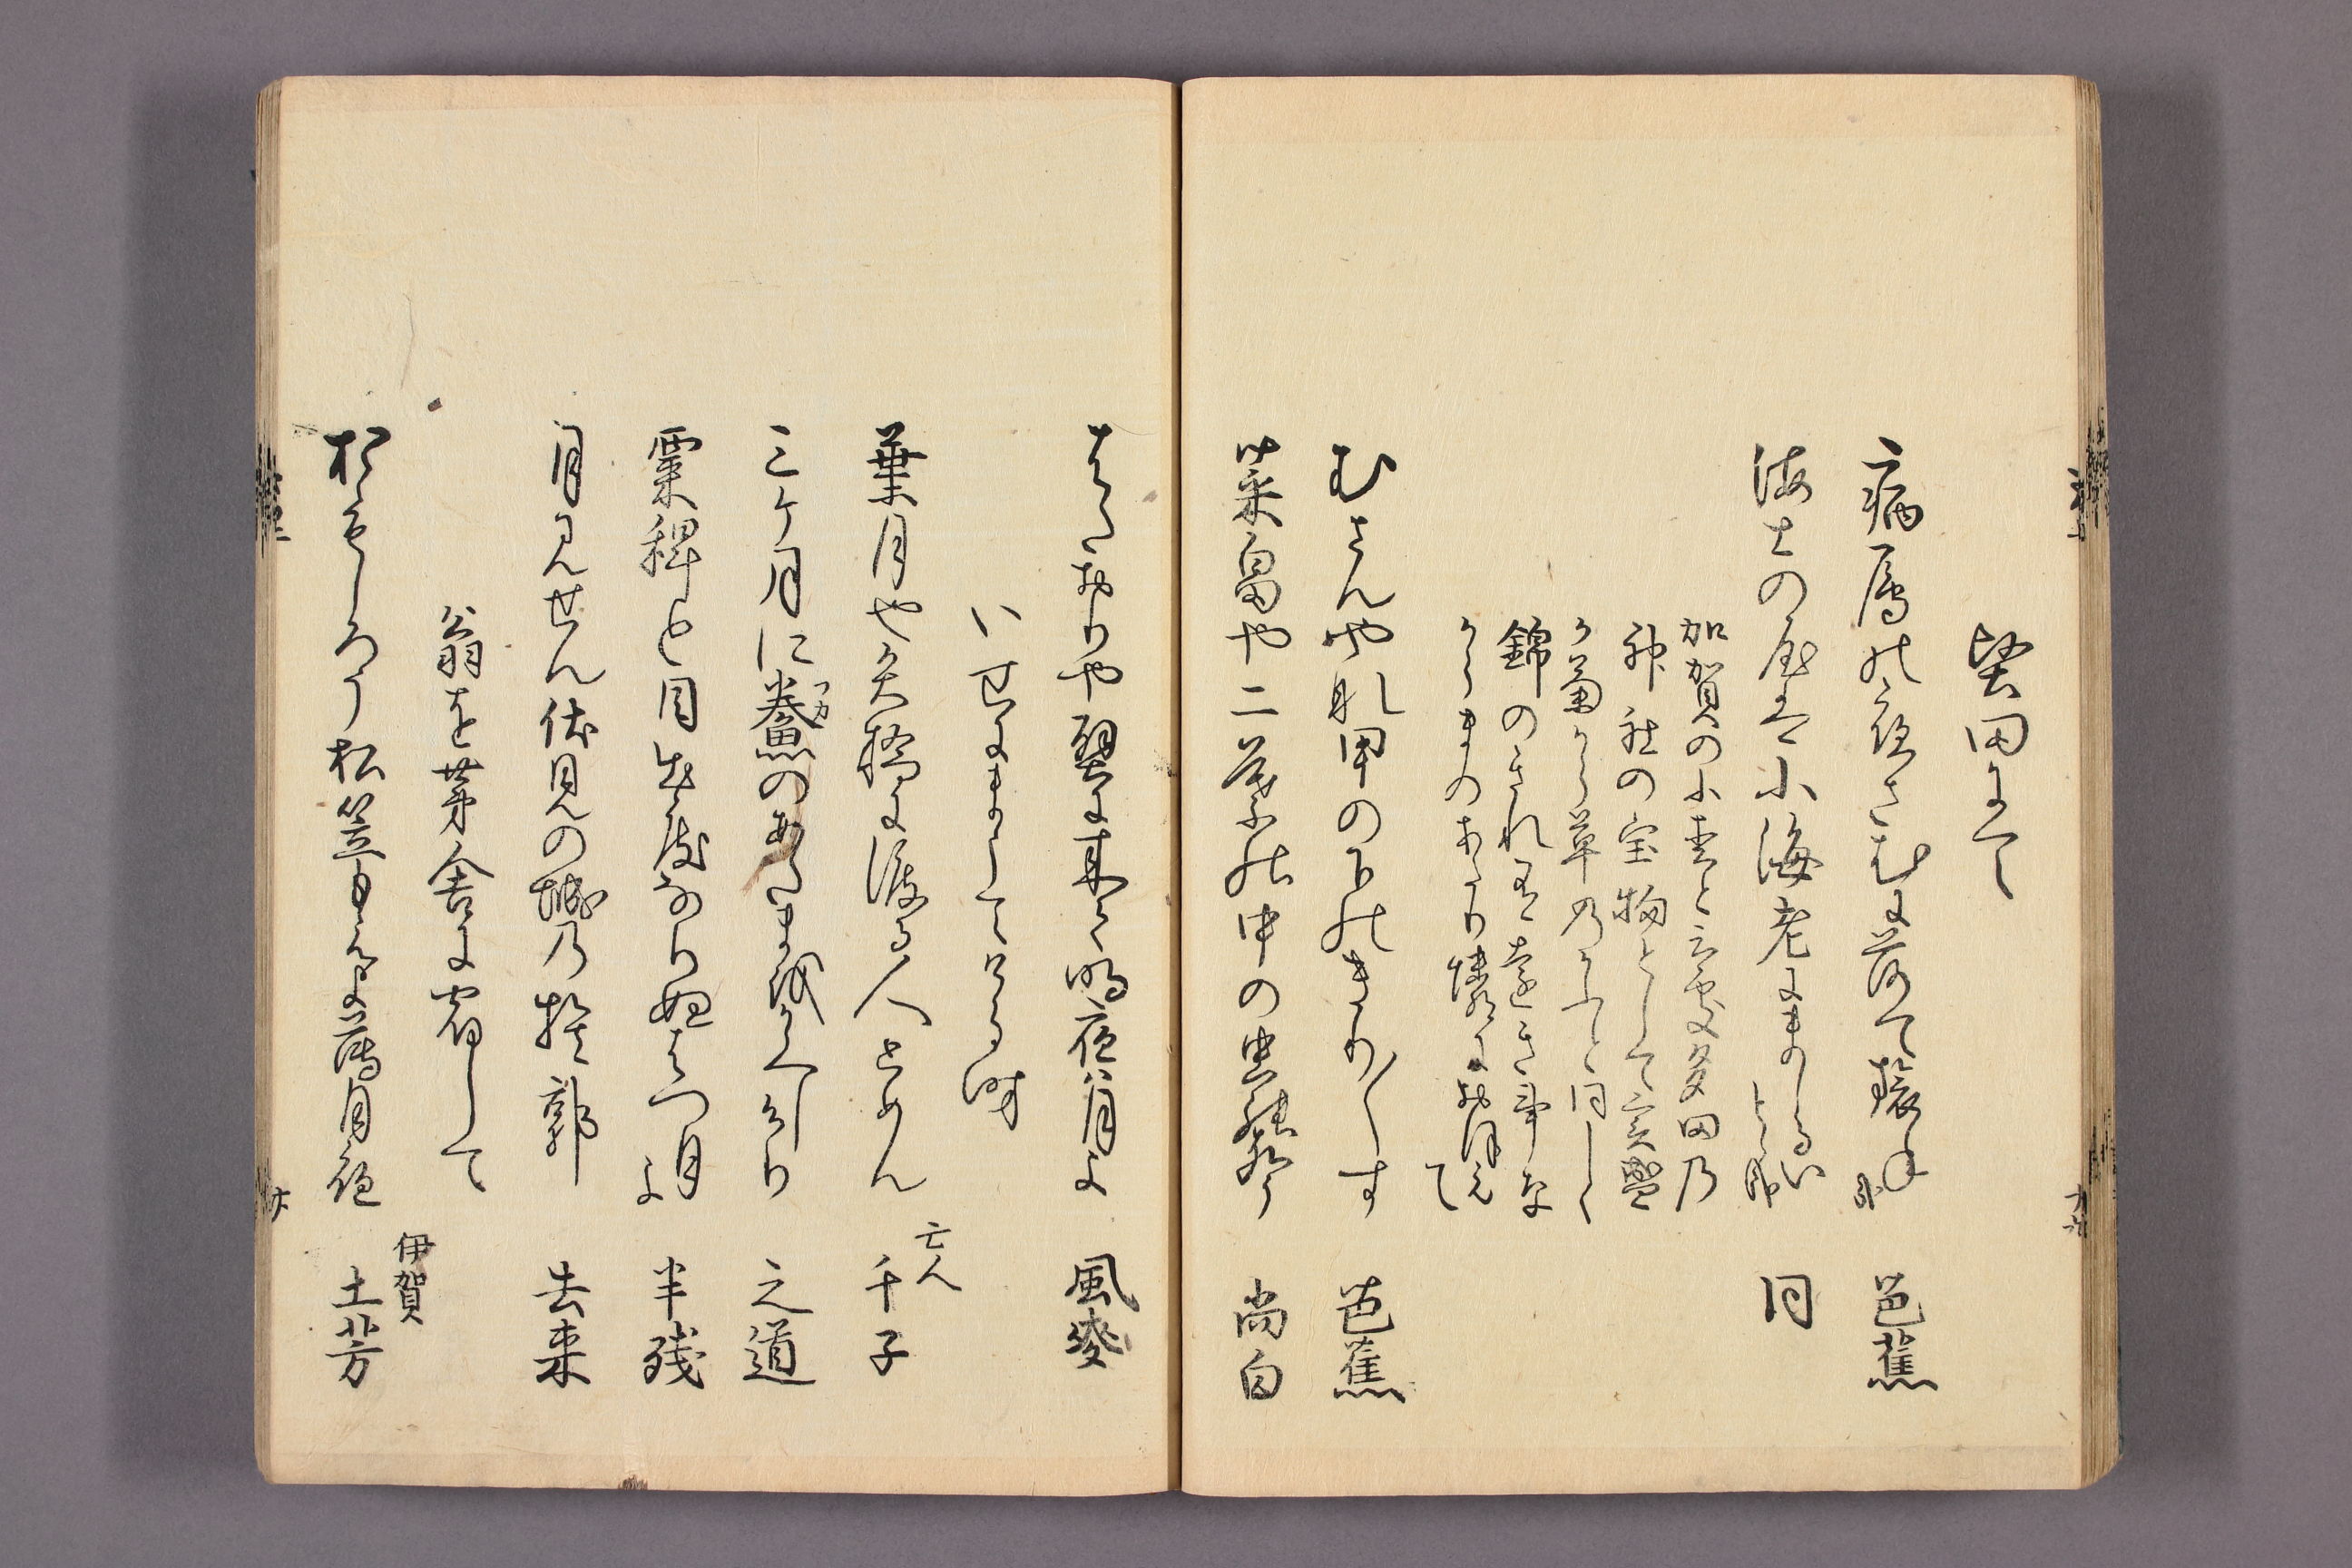 堅田にて
病鴈の夜さむに落て旅ね哉 芭蕉
海士の屋は小海老にましるいとゝ哉 同
加賀の小松と云處多田の
神社の宝物として実盛
か菊から草のかふと同しく
錦のきれ有遠き事な
からまのあたり憐におほえ
て
むさんやな甲の下のきり／＼す 芭蕉
菜畠や二葉の中の虫の聲 尚白
はたおりや壁に来て鳴夜は月よ 風麥
いせにまうてける時
葉月也矢橋に渡る人とめん 亡人 千子
三ケ月に鱶のあたまをかくしけり 之道
粟稗と目出度なりぬはつ月よ 半残
月見せん伏見の城の捨郭 去来
翁を茅舎に宿して
おもしろう松笠もえよ薄月夜 伊賀 土芳